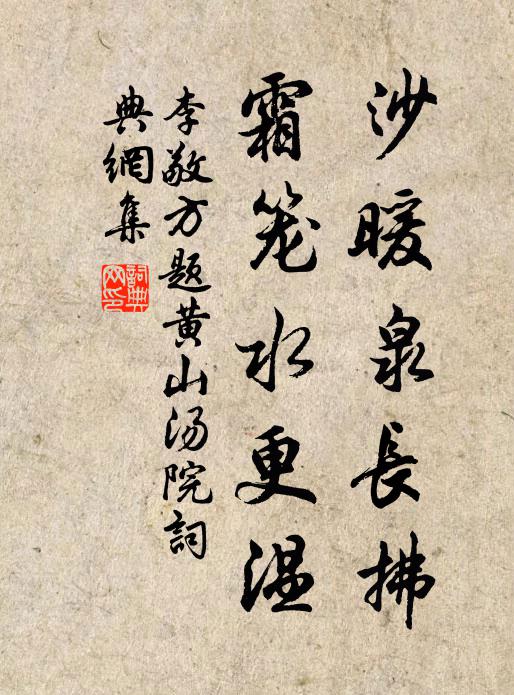 沙暖泉長拂
霜笼水更温
李敬方题黄山汤院詞
典網集
詞典网印